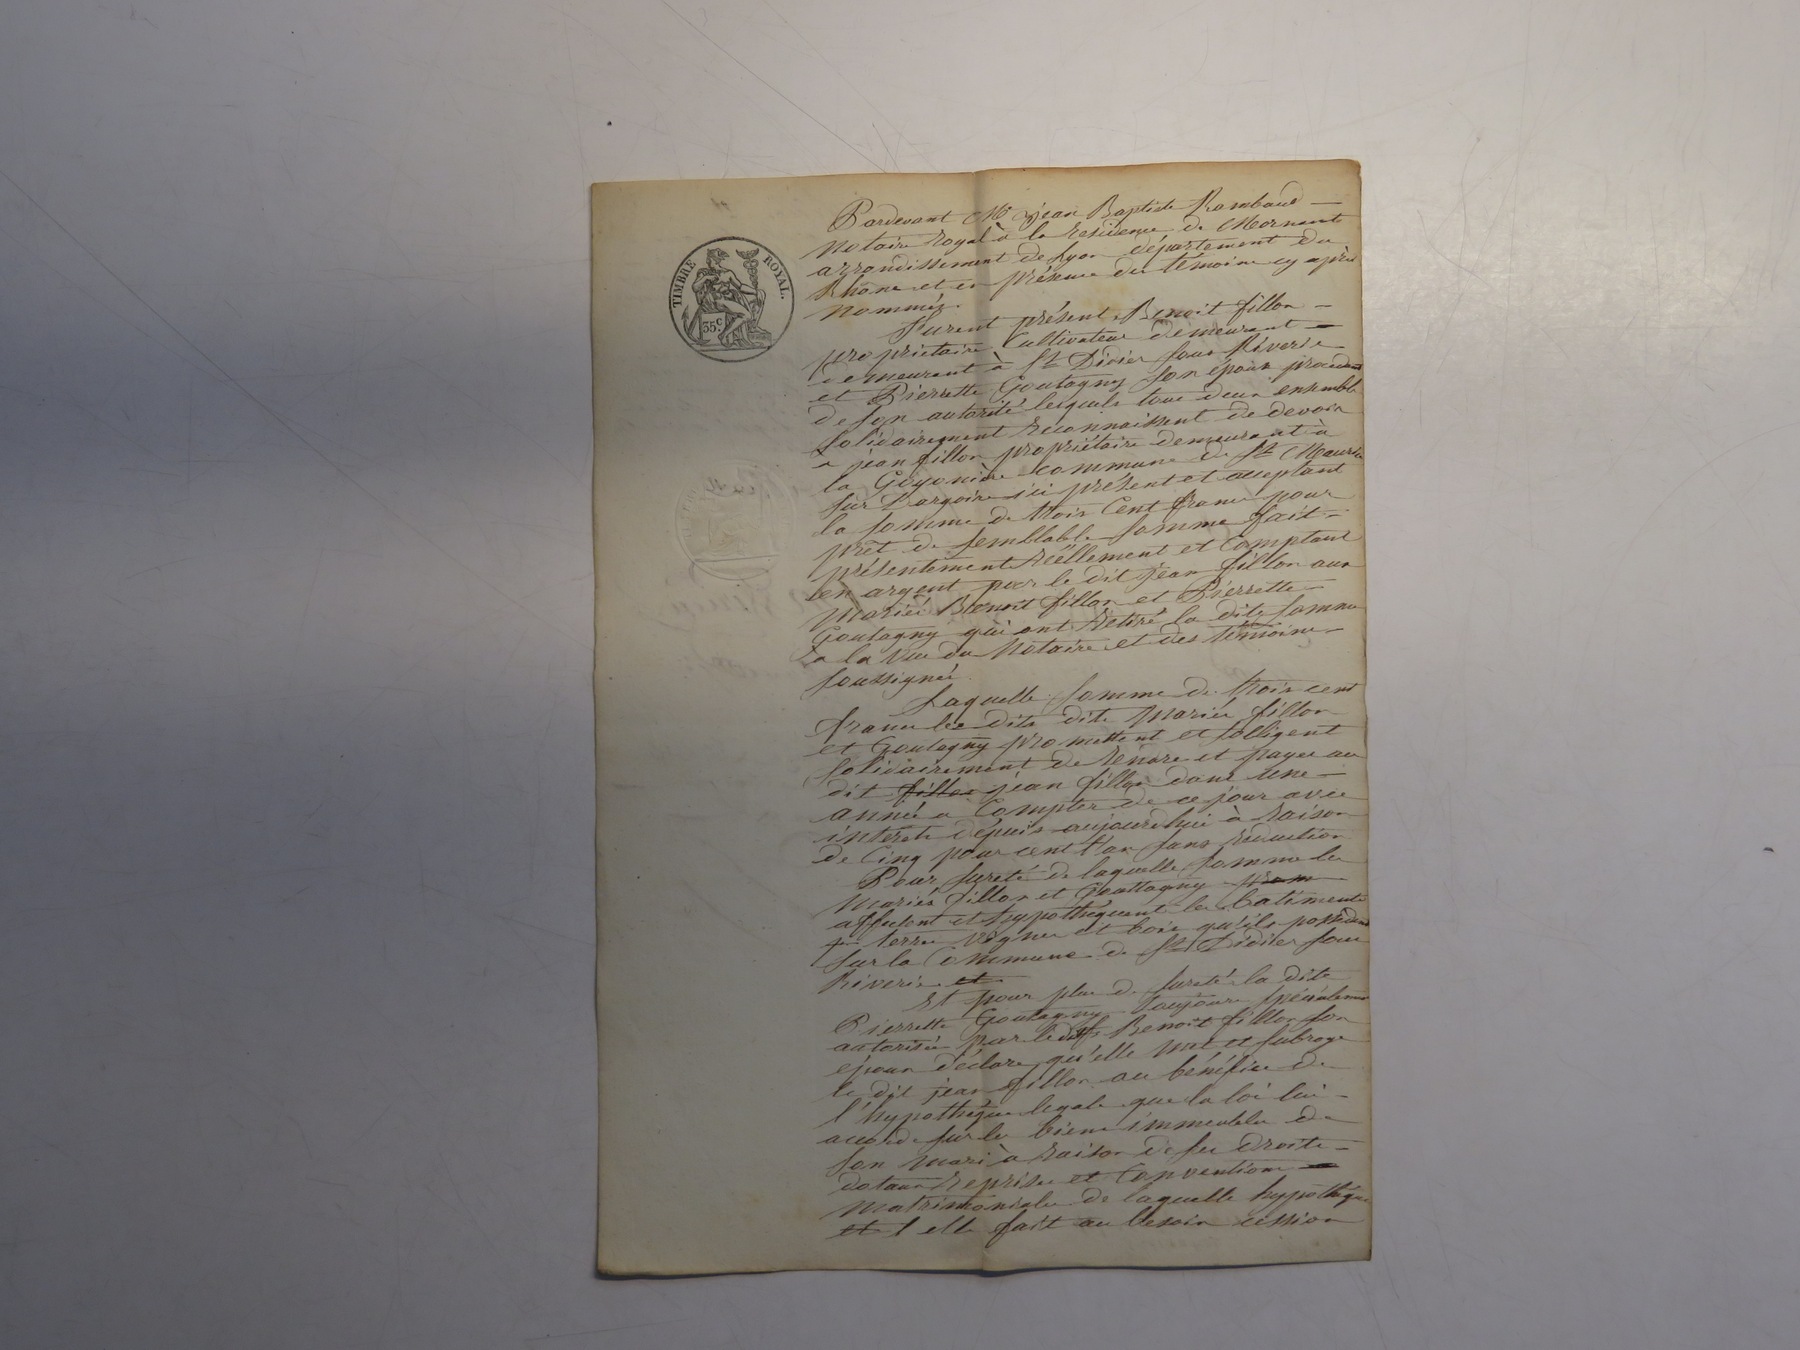 TIMBRE ROYAL.
35 c
Pardevant Me jean Baptiste Rambaud
Notaire Royal à la Residence de Mornant
arrondissement de Lyon département du
Rhône et en présence des témoins cy après
nommés.
furent présent Benoit fillon
propriétaire Cultivateur demeurant
demeurant à St Didier sous Riverie
et Pierrette Goutagny son épouse procédant
de son autorité lesquels tous deux ensemble
solidairement reconnaissent de devoir
a jean fillon propriétaire demeurant à
la commune de St Maurice
sur Dargoire ici présent et acceptant
la somme de trois Cent francs pour
prêt de semblable somme fait
présentement réellement et Comptant
en argent par le dit jean fillon aux
mariés Benoit fillon et Pierrette
Goutagny qui ont retiré la dite somme
a la vue du Notaire et des témoins
soussignés
Laquelle somme de trois cent
francs les dits dits mariés fillon
et Goutagny promettent et sobligent
solidairement de rendre et payer au
dit fillon jean fillon dans une
année a Compter de ce jour avec
intérêts dépuis aujourdhui à raison
de Cinq pour cent l'an sans réduction
Pour sureté de laquelle somme les
mariés fillon et Gouttagny prom
affectent et hypothèquent les batiments
terres vignes et bois qu'ils possèdent
sur la Commune de St Didier sous
Riverie et
Et pour plus de sureté la dite
Pierrette Goutagny toujours spécialement
autorisée par le dit Benoit fillon son
époux déclare qu'elle met et subroge
le dit jean fillon au bénéfice de
l'hypothèque légale que la loi lui
accorde sur les biens immeubles de
son mari à raison de ses droits
dotaux reprises et Conventions
matrimoniales de laquelle hypothèque
et l elle fait au besoin cession